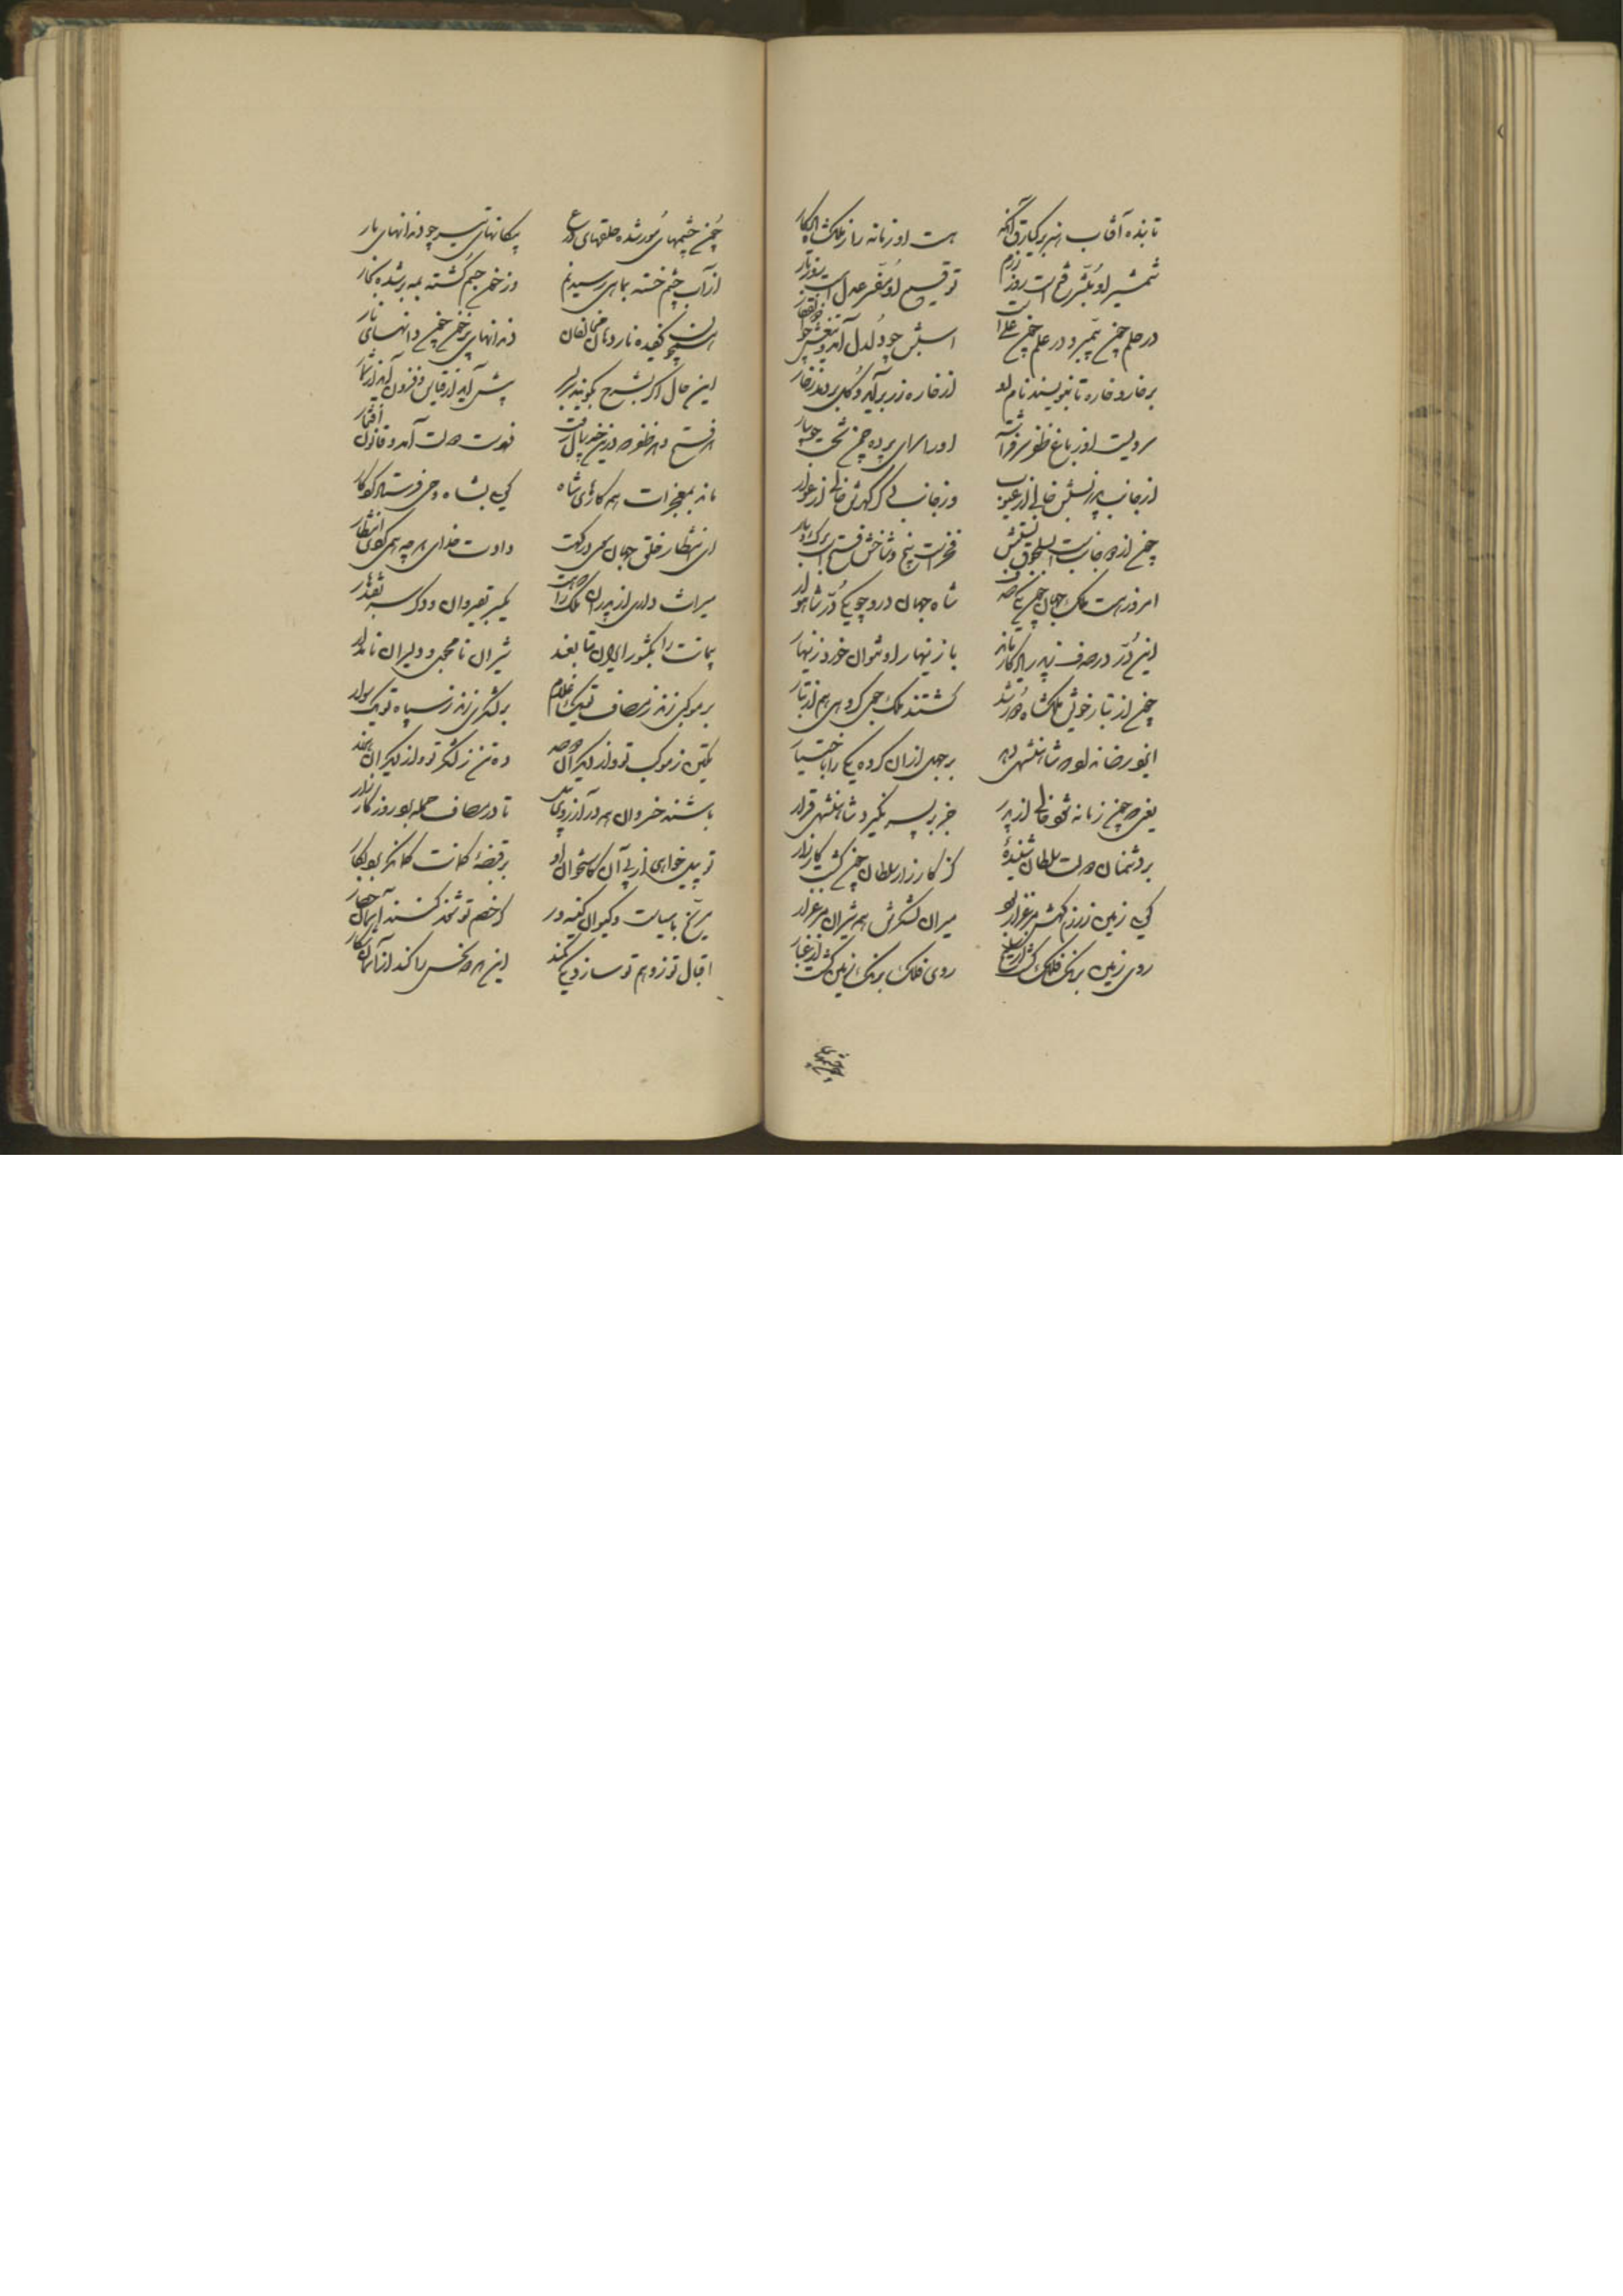 تابنده آفتاب هنر برکیارق آنکه هست او زمانه را ز ملکشاه یادکار
شمشیر او مبشر فتح است روز رزم توقیع او مفسر عدل است روز بار
در حلم چون پیمبر و در علم چون علی است اسبش چو دلدل آمد و تیغش چو ذوالفقار
بر خار و خاره تا بنویسند نام او از خاره زر برآید و گل بردمد ز خار
سرویست او ز باغ ظفر سرفراشته او را سرای پرده چمن تخت جویبار
از جانب پدر نسبش خالی از عیوب وز جانب دگر گهرش خالی از عوار
چون از دو جانب است بسلجوق نسبتش فخر است بیخ و شاخش و فتح است برگ و بار
امروز هست ملک جهان چون یکی صدف شاه جهان درو چو یکی در شاهوار
این در در صدف ز پدر یادکار ماند با زینهار او نتوان خورد زینهار
چون از تبار خویش ملکشاه دور شد گشتند ملک جوی گروهی هم از تبار
ایزد رضا نداد و شاهنشهی بداد بر جمله زان گروه یکی را باختیار
یعنی چو چون زمانه شود خالی از پدر جز بر پسر نگیرد شاهنشهی قرار
بر دشمنان دولت سلطان شنیده کز کارزار سلطان چون گشت کار زار
گویی زمین رزمگهش مرغزار بود میران لشکرش همه شیران مرغزار
روی زمین برنگ فلک گشت از سلیح روی فلک برنگ زمین گشت از غبار
چون چشمهای مور شده حلقهای درع پیکانهای تیر چو دندانهای مار
از آب چشم خسته بماهی رسید نم وز خون جسم کشته بمه بر شده بخار
همچون کفیده نار دهان مخالفان دندانهای پر خون چون دانهای نار
این حال اگر بشرح بگویند سربسر بیش آید از قیاس و فزون آید از شمار
هر فتح و هر ظفر که درین خسروان یافت قوت دولت آمد و قانون افتخار
ماند بمعجزات همه کارهای شاه گویی بشاه وحی فرستاد کردگار
ای انتظار خلق جهان سوی درگهت دادت خدای هرچه همی کردی انتظار
میراث داری از پدران ملک را چنانک یکسر بقیروان و دگر سر بقندهار
پیمانت را بکشور ایران متابعند شیران نامجوی و دلیران نامدار
بر موکبی زند ز مصاف تو یک غلام بر لشکری زند ز سپاه تو یک سوار
یکتن ز موکب تو و از دیگران دویست ده تن ز لشکر تو و از دیگران هزار
باشند خسروان همه در آرزوی آن تا در مصاف حمله بود روز کارزار
تو پیل خواهی از پی آن کاستخوان او بر قبضه کمانت کمانگر برد بکار
مریخ با سیاست و کیوان کینه‌ور گر خصم تو شوند کنند آسمان حصار
اقبال تو نزد هم تو سازد یکی کمند این هر دو نحس را کند از آسمان شکار